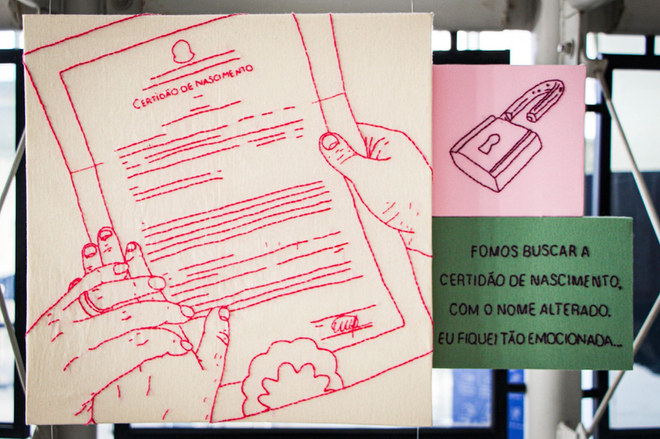 CERTIDÃO DE NASCIMENTO
FOMOS BUSCAR A
CERTIDÃO DE NASCIMENTO,
COM O NOME ALTERADO.
EU FIQUEI TÃO EMOCIONADA...